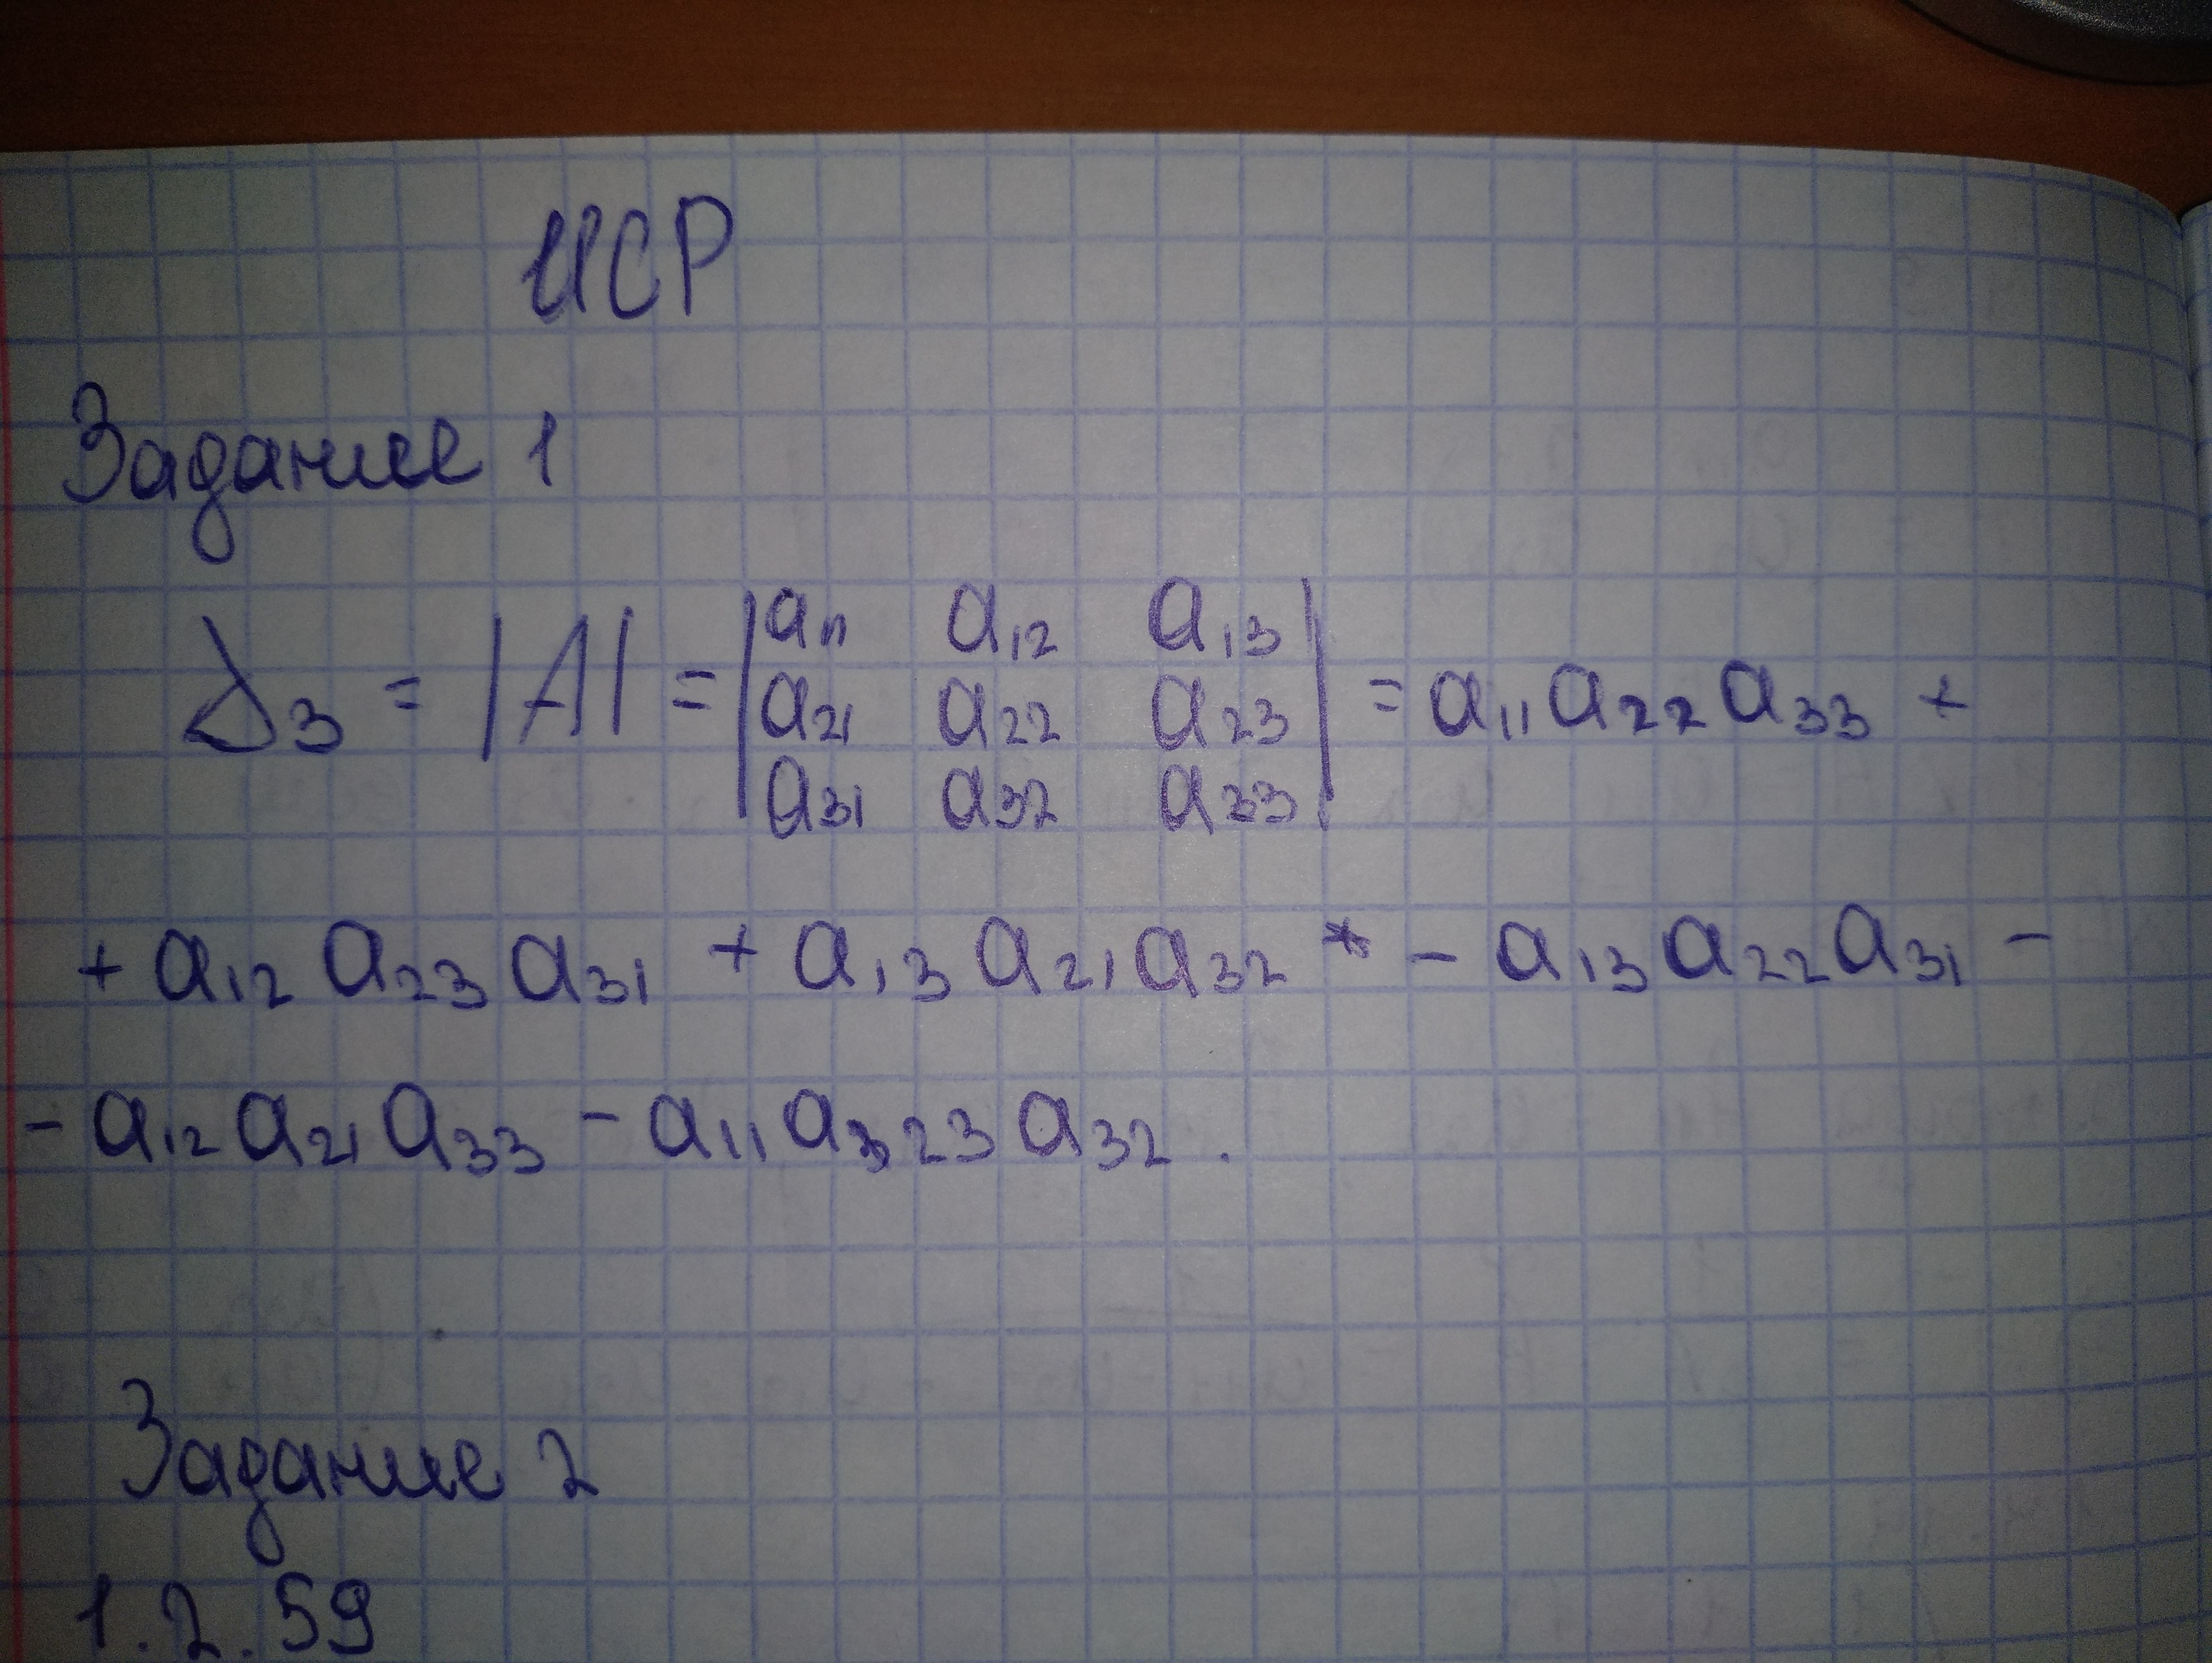 ИСР
Задание 1
Δ₃ = |A| = | a₁₁ a₁₂ a₁₃ | = a₁₁a₂₂a₃₃ +
a₂₁ a₂₂ a₂₃
a₃₁ a₃₂ a₃₃
+ a₁₂ a₂₃ a₃₁ + a₁₃ a₂₁ a₃₂ - a₁₃ a₂₂ a₃₁ -
- a₁₂ a₂₁ a₃₃ - a₁₁ a₂₃ a₃₂ .
Задание 2
1.2.59